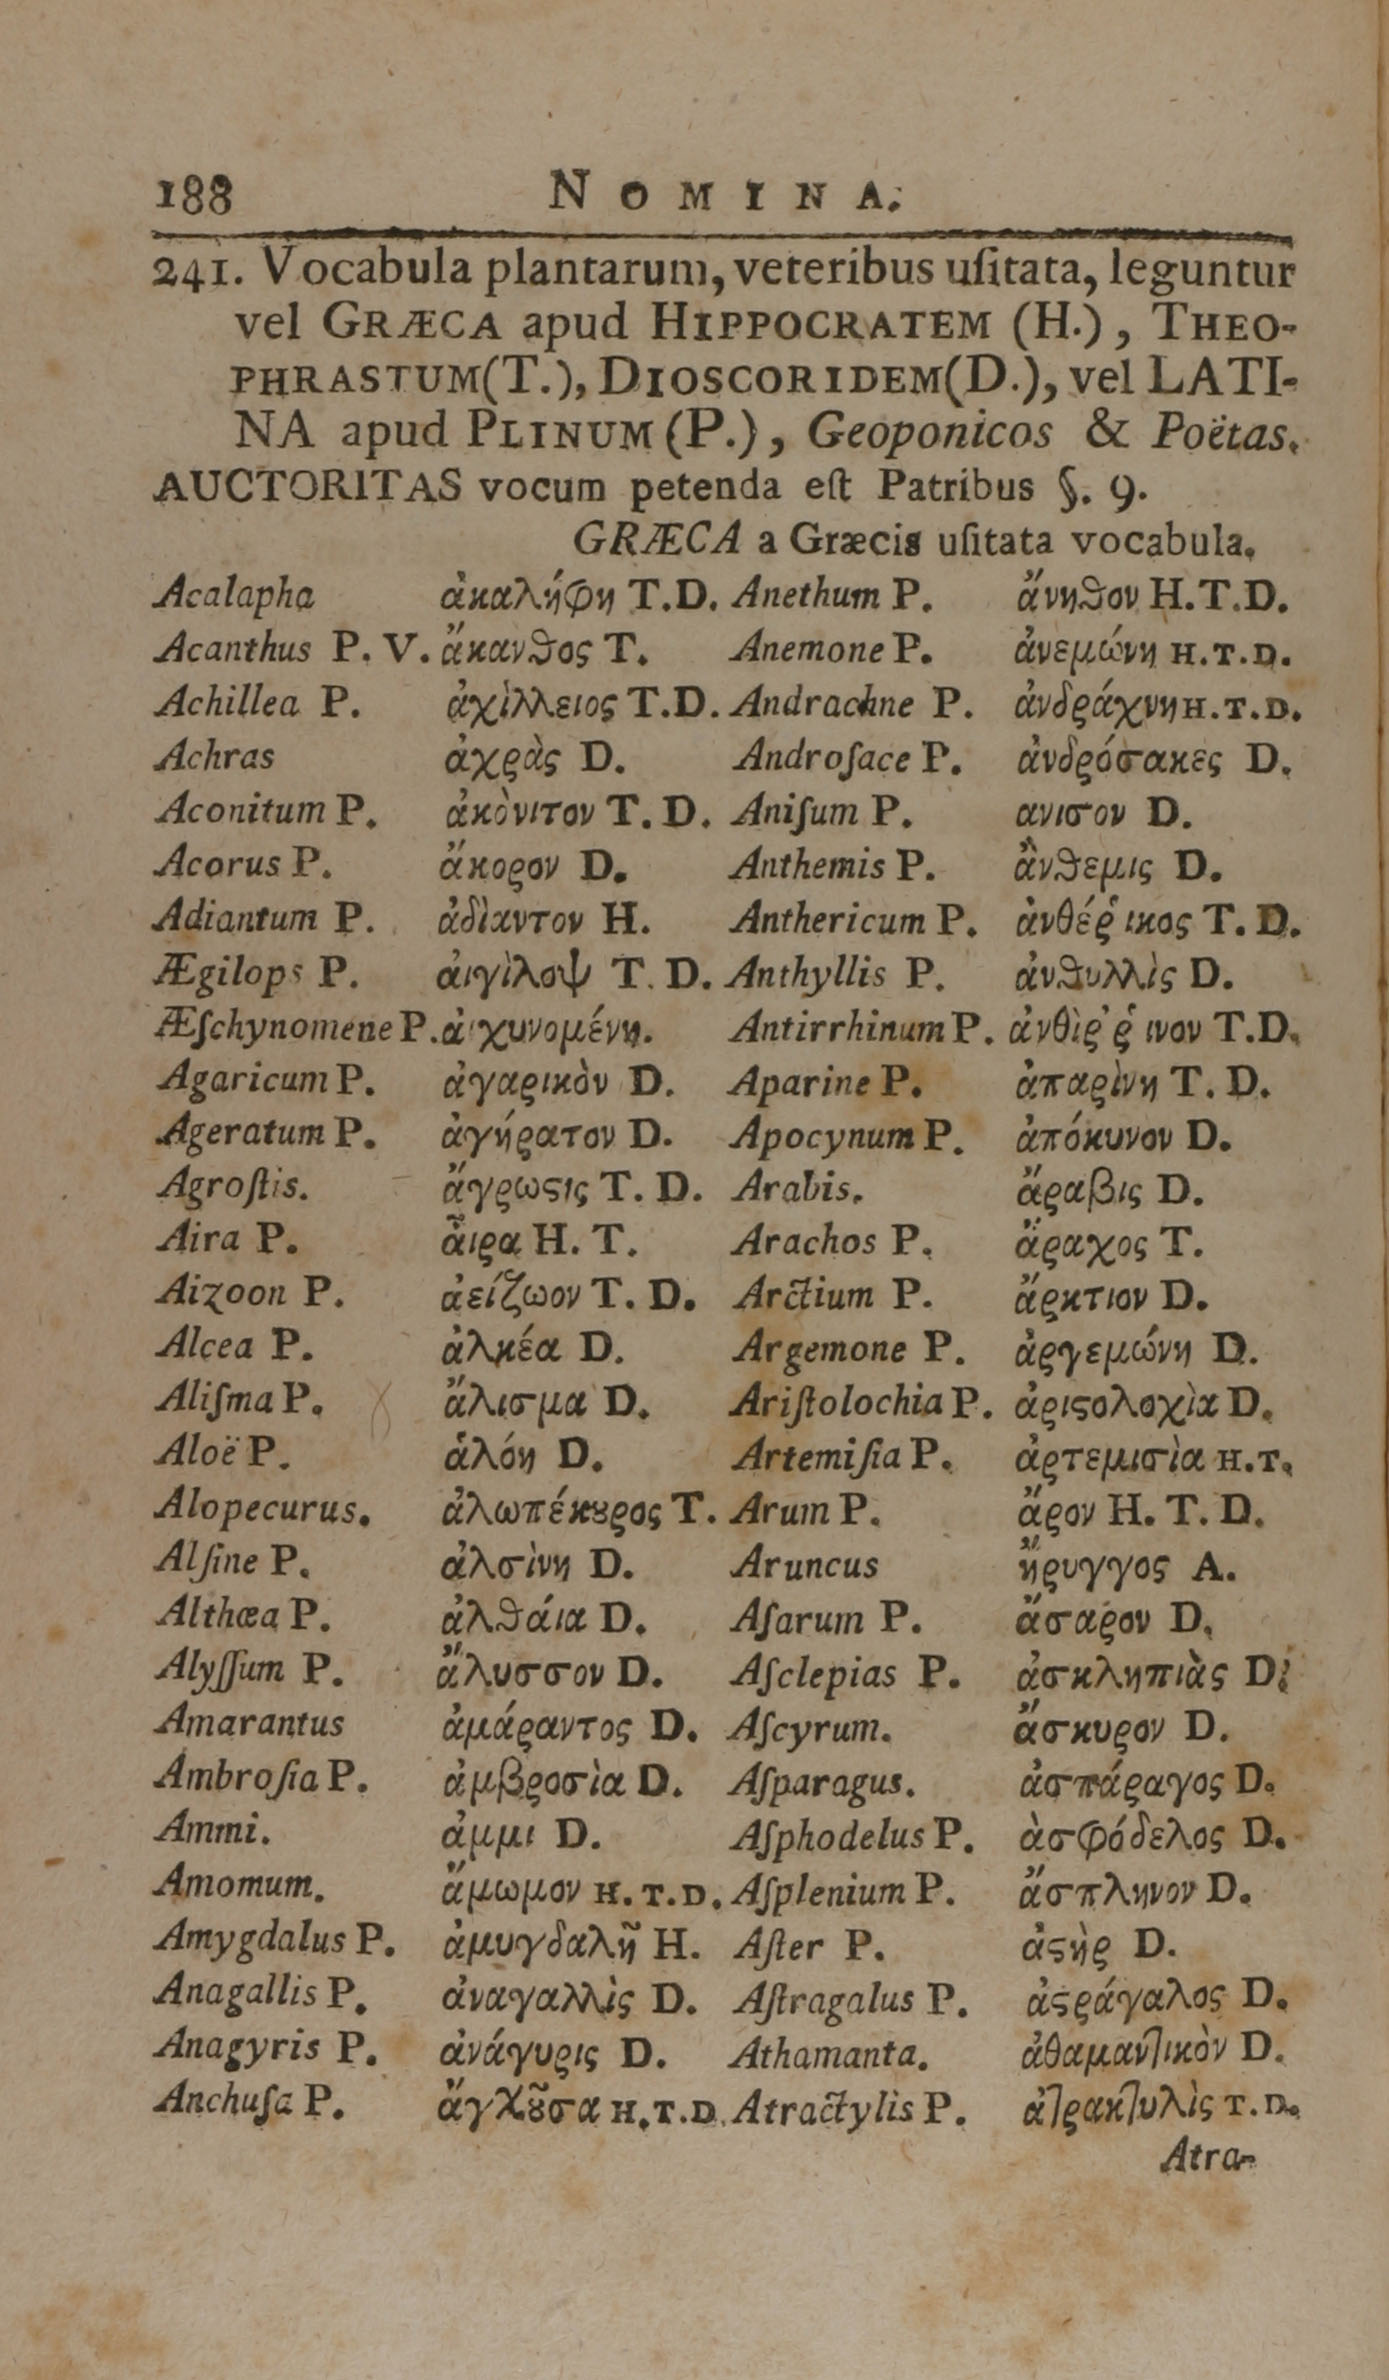 188 NOMINA.
241. Vocabula plantarum, veteribus uſitata, leguntur
vel GRÆCA apud HIPPOCRATEM (H.), THEO-
PHRASTUM(T.), DIOSCORIDEM(D.), vel LATI-
NA apud PLINUM (P.), Geoponicos & Poëtas.
AUCTORITAS vocum petenda eſt Patribus §. 9.
GRÆCA a Græcis uſitata vocabula.
Acalapha ἀκαλήφη T.D. Anethum P. ἄνηϑον H.T.D.
Acanthus P. V. ἄκανϑος T. Anemone P. ἀνεμώνη H.T.D.
Achillea P. ἀχὶλλειος T.D. Andrachne P. ἀνδράχνη H.T.D.
Achras ἀχρὰς D. Androſace P. ἀνδρόσακες D.
Aconitum P. ἀκὸνιτον T. D. Aniſum P. ανισον D.
Acorus P. ἄκορον D. Anthemis P. ἂνϑεμις D.
Adiantum P. ἀδὶαντον H. Anthericum P. ἀνθέῤ ικος T. D.
Ægilops P. ἀιγὶλοψ T. D. Anthyllis P. ἀνϑυλλὶς D.
Æſchynomene P. ἀιχυνομένη. Antirrhinum P. ἀνθὶρ῾ῥ ινον T.D.
Agaricum P. ἀγαρικὸν D. Aparine P. ἀπαρὶνη T. D.
Ageratum P. ἀγήρατον D. Apocynum P. ἀπόκυνον D.
Agroſtis. ἄγρωϛις T. D. Arabis. ἄραβις D.
Aira P. ἆιρα H. T. Arachos P. ἄραχος T.
Aizoon P. ἀείζωον T. D. Arctium P. ἄρκτιον D.
Alcea P. ἀλκέα D. Argemone P. ἀργεμώνη D.
Aliſma P. ἄλισμα D. Ariſtolochia P. ἀριϛολοχὶα D.
Aloë P. ἁλόη D. Artemiſia P. ἀρτεμισὶα H.T.
Alopecurus. ἀλωπέκȣρος T. Arum P. ἄρον H. T. D.
Alſine P. ἀλσὶνη D. Aruncus ἤρυγγος A.
Althœa P. ἀλϑάια D. Aſarum P. ἄσαρον D.
Alyſſum P. ἄλυσσον D. Aſclepias P. ἀσκληπιὰς D.
Amarantus ἀμάραντος D. Aſcyrum. ἄσκυρον D.
Ambroſia P. ἀμβροσὶα D. Aſparagus. ἀσπάραγος D.
Ammi. ἀμμι D. Aſphodelus P. ἀσφόδελος D.
Amomum. ἄμωμον H.T.D. Aſplenium P. ἄσπληνον D.
Amygdalus P. ἀμυγδαλῆ H. Aſter P. ἀϛὴρ D.
Anagallis P. ἀναγαλλὶς D. Aſtragalus P. ἀϛράγαλος D.
Anagyris P. ἀνάγυρις D. Athamanta. ἀθαμαντικὸν D.
Anchuſa P. ἄγχȣ͂σα H.T.D. Atractylis P. ἀτρακτυλὶς T.D.
Atra-